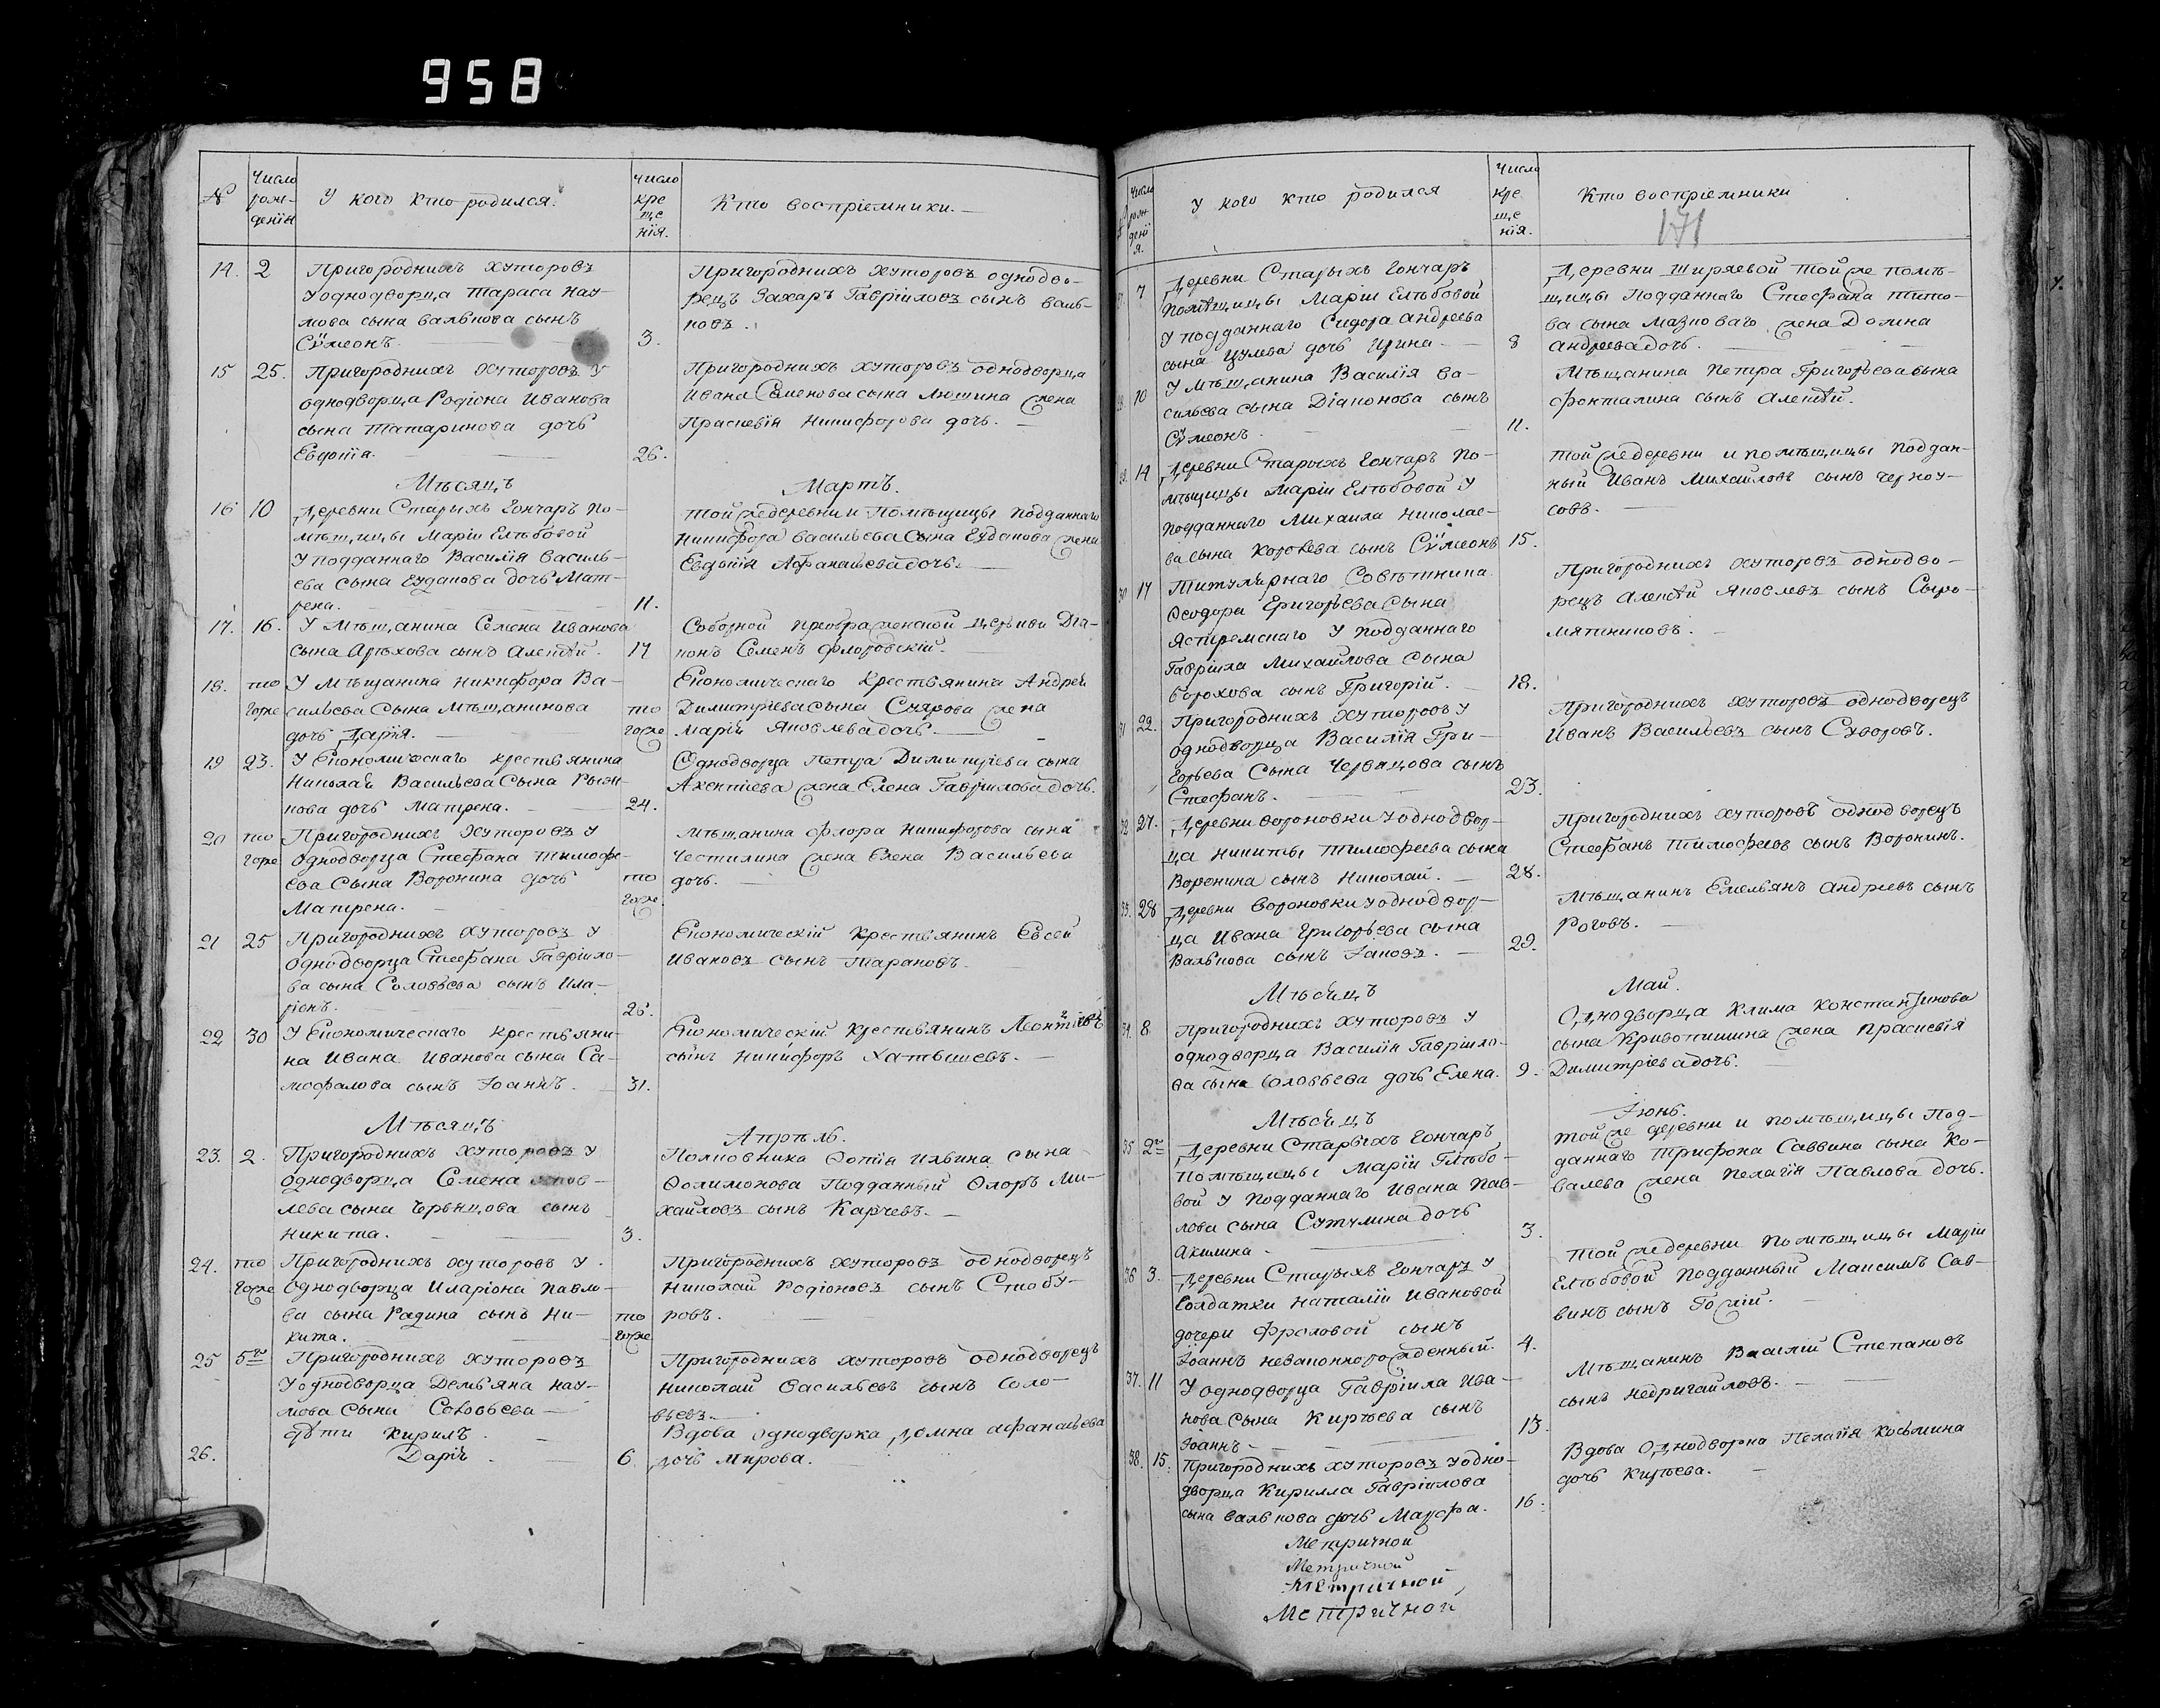 958
№
Число рож- денія
У кого кто родился.
Число кре ще нія.
Кто воспріемники.
14. 2 Пригороднихъ хуторовъ
У однодворца Тараса Нау-
мова сына Вальнова сынъ
Сѵмеонъ. 3.
Пригороднихъ хуторовъ однодво-
рецъ Захаръ Гавріиловъ сынъ Валь-
новъ.
15 25. Пригороднихъ хуторовъ У
однодворца Родіона Иванова
сына Татаринова дочь
Евдокія. 26.
Пригороднихъ хуторовъ однодворца
Ивана Семенова сына Люшина жена
Праскевія Никифорова дочь.
Мѣсяцъ Мартъ.
16 10 Деревни Старыхъ Гончаръ по-
мѣщицы Маріи Глѣбовой
У подданнаго Василія Василь-
ева сына Гуданова дочь Мат-
рена. 11.
Той же деревни и помѣщицы подданнаго
Никифора Васильева сына Гуданова жена
Евдокія Афанасьева дочь.
17. 16. У мѣщанина Семена Иванова
сына Арѣхова сынъ Алексѣй. 17
Соборной Преображенской церкви Діа-
конъ Семенъ Флоровскій.
18. то гоже У мѣщанина Никифора Ва-
сильева сына Мѣщанинова
дочь Дарія. то гоже.
Економическаго крестьянина Андрей
Димитріева сына Снярова жена
Марія Яковлева дочь.
19 23. У Економическаго крестьянина
Николай Васильева сына Рыж-
нова дочь Матрена. 24.
Однодворца Петра Димитріева сына
Акентіева жена Елена Гавріилова дочь.
20 то гоже Пригороднихъ хуторовъ У
однодворца Стефана Тимофе-
ева сына Воронина дочь
Матрена. то гоже.
Мѣщанина Флора Никифорова сына
Честилина жена Елена Васильева
дочь.
21 25 Пригороднихъ хуторовъ У
однодворца Стефана Гавріило-
ва сына Соловьева сынъ Ила-
ріонъ. 26.
Економическій крестьянинъ Евсей
Ивановъ сынъ Тарановъ.
22 30 У Економическаго крестьяни-
на Ивана Иванова сына Са-
мофалова сынъ Іоаннъ. 31.
Економическій крестьянинъ Леонтіевъ
сынъ Никифоръ Хатышевъ.
Мѣсяцъ Апрѣль.
23. 2. Пригороднихъ хуторовъ У
однодворца Семена Яков-
лева сына Червяцова сынъ
Никита. 3.
Полковника Фотія Ильина сына
Филимонова подданный Флоръ Ми-
хайловъ сынъ Карчевъ.
24. то гоже Пригороднихъ хуторовъ У
однодворца Иларіона Павло-
ва сына Радина сынъ Ни-
кита. то гоже
Пригороднихъ хуторовъ однодворецъ
Николай Родіоновъ сынъ Стобу-
ровъ.
25 5го Пригороднихъ хуторовъ
У однодворца Демьяна Нау-
мова сына Соловьева
дѣти Кирилъ
26. Дарія. 6
Пригороднихъ хуторовъ однодворецъ
Николай Васильевъ сынъ Соло-
вьевъ.
Вдова однодворка Домна Афанасьева
дочь Мирова.
Число рож дені я.
У кого кто родился
Число кре ще нія.
Кто воспріемники
171
7 Деревни Старыхъ Гончаръ
помѣщицы Маріи Глѣбовой
У подданнаго Сидора Андреева
сына Цулева дочь Ирина. 8
Деревни Ширяевой той же помѣ-
щицы подданнаго Стефана Тито-
ва сына Мазноваго жена Домна
Андреева дочь.
28. 10 У мѣщанина Василія Ва-
сильева сына Діаконова сынъ
Сѵмеонъ. 11.
Мѣщанина Петра Григорьева сына
Фонталина сынъ Алексѣй.
29. 14 Деревни Старыхъ Гончаръ по-
мѣщицы Маріи Глѣбовой У
подданнаго Михаила Николае-
ва сына Королева сынъ Сѵмеонъ 15.
Той же деревни и помѣщицы поддан-
ный Иванъ Михайловъ сынъ Черноу-
совъ.
30 17 Титулярнаго Совѣтника
Ѳеодора Григорьева сына
Ястремскаго У подданнаго
Гавріила Михайлова сына
Борохова сынъ Григорій. 18.
Пригороднихъ хуторовъ однодво-
рецъ Алексѣй Яковлевъ сынъ Сыро-
мятниковъ.
31 22. Пригороднихъ хуторовъ У
однодворца Василія Гри-
горьева сына Червяцова сынъ
Стефанъ. 23.
Пригороднихъ хуторовъ однодворецъ
Иванъ Васильевъ сынъ Суворовъ.
32 27. Деревни Вороновки У однодвор-
ца Никиты Тимофеева сына
Воронина сынъ Николай. 28.
Пригороднихъ хуторовъ однодворецъ
Стефанъ Тимофеевъ сынъ Воронинъ.
33. 28 Деревни Вороновки У однодвор-
ца Ивана Григорьева сына
Вальнова сынъ Іаковъ. 29.
Мѣщанинъ Емельянъ Андреевъ сынъ
Роговъ.
Мѣсяцъ Май.
34. 8 Пригороднихъ хуторовъ У
однодворца Василія Гаврiило-
ва сына Соловьева дочь Елена. 9.
Однодворца Клима Константинова
сына Кривошишина жена Праскевія
Димитріева дочь.
Мѣсяцъ Іюнь.
35 2го Деревни Старыхъ Гончаръ
помѣщицы Маріи Глѣбо-
вой У подданнаго Ивана Пав-
лова сына Сутулина дочь
Акилина. 3.
Той же деревни и помѣщицы под-
даннаго Трифона Саввина сына Ко-
валева жена Пелагія Павлова дочь.
36 3. Деревни Старыхъ Гончаръ У
солдатки Наталіи Ивановой
дочери Фроловой сынъ
Іоаннъ незаконнорожденный. 4.
Той же деревни помѣщицы Маріи
Глѣбовой подданный Максимъ Сав-
винъ сынъ Гожій.
37. 11 У однодворца Гавріила Ива-
нова сына Кирѣева сынъ
Іоаннъ 13.
Мѣщанинъ Василій Степановъ
сынъ Недригайловъ.
38. 15. Пригороднихъ хуторовъ У одно-
дворца Кирилла Гавріилова
сына Вальнова дочь Марфа. 16.
Вдова Однодворка Пелагія Косьмина
дочь Кирѣева.
Метричной
Метричной
Метричной
Метричной